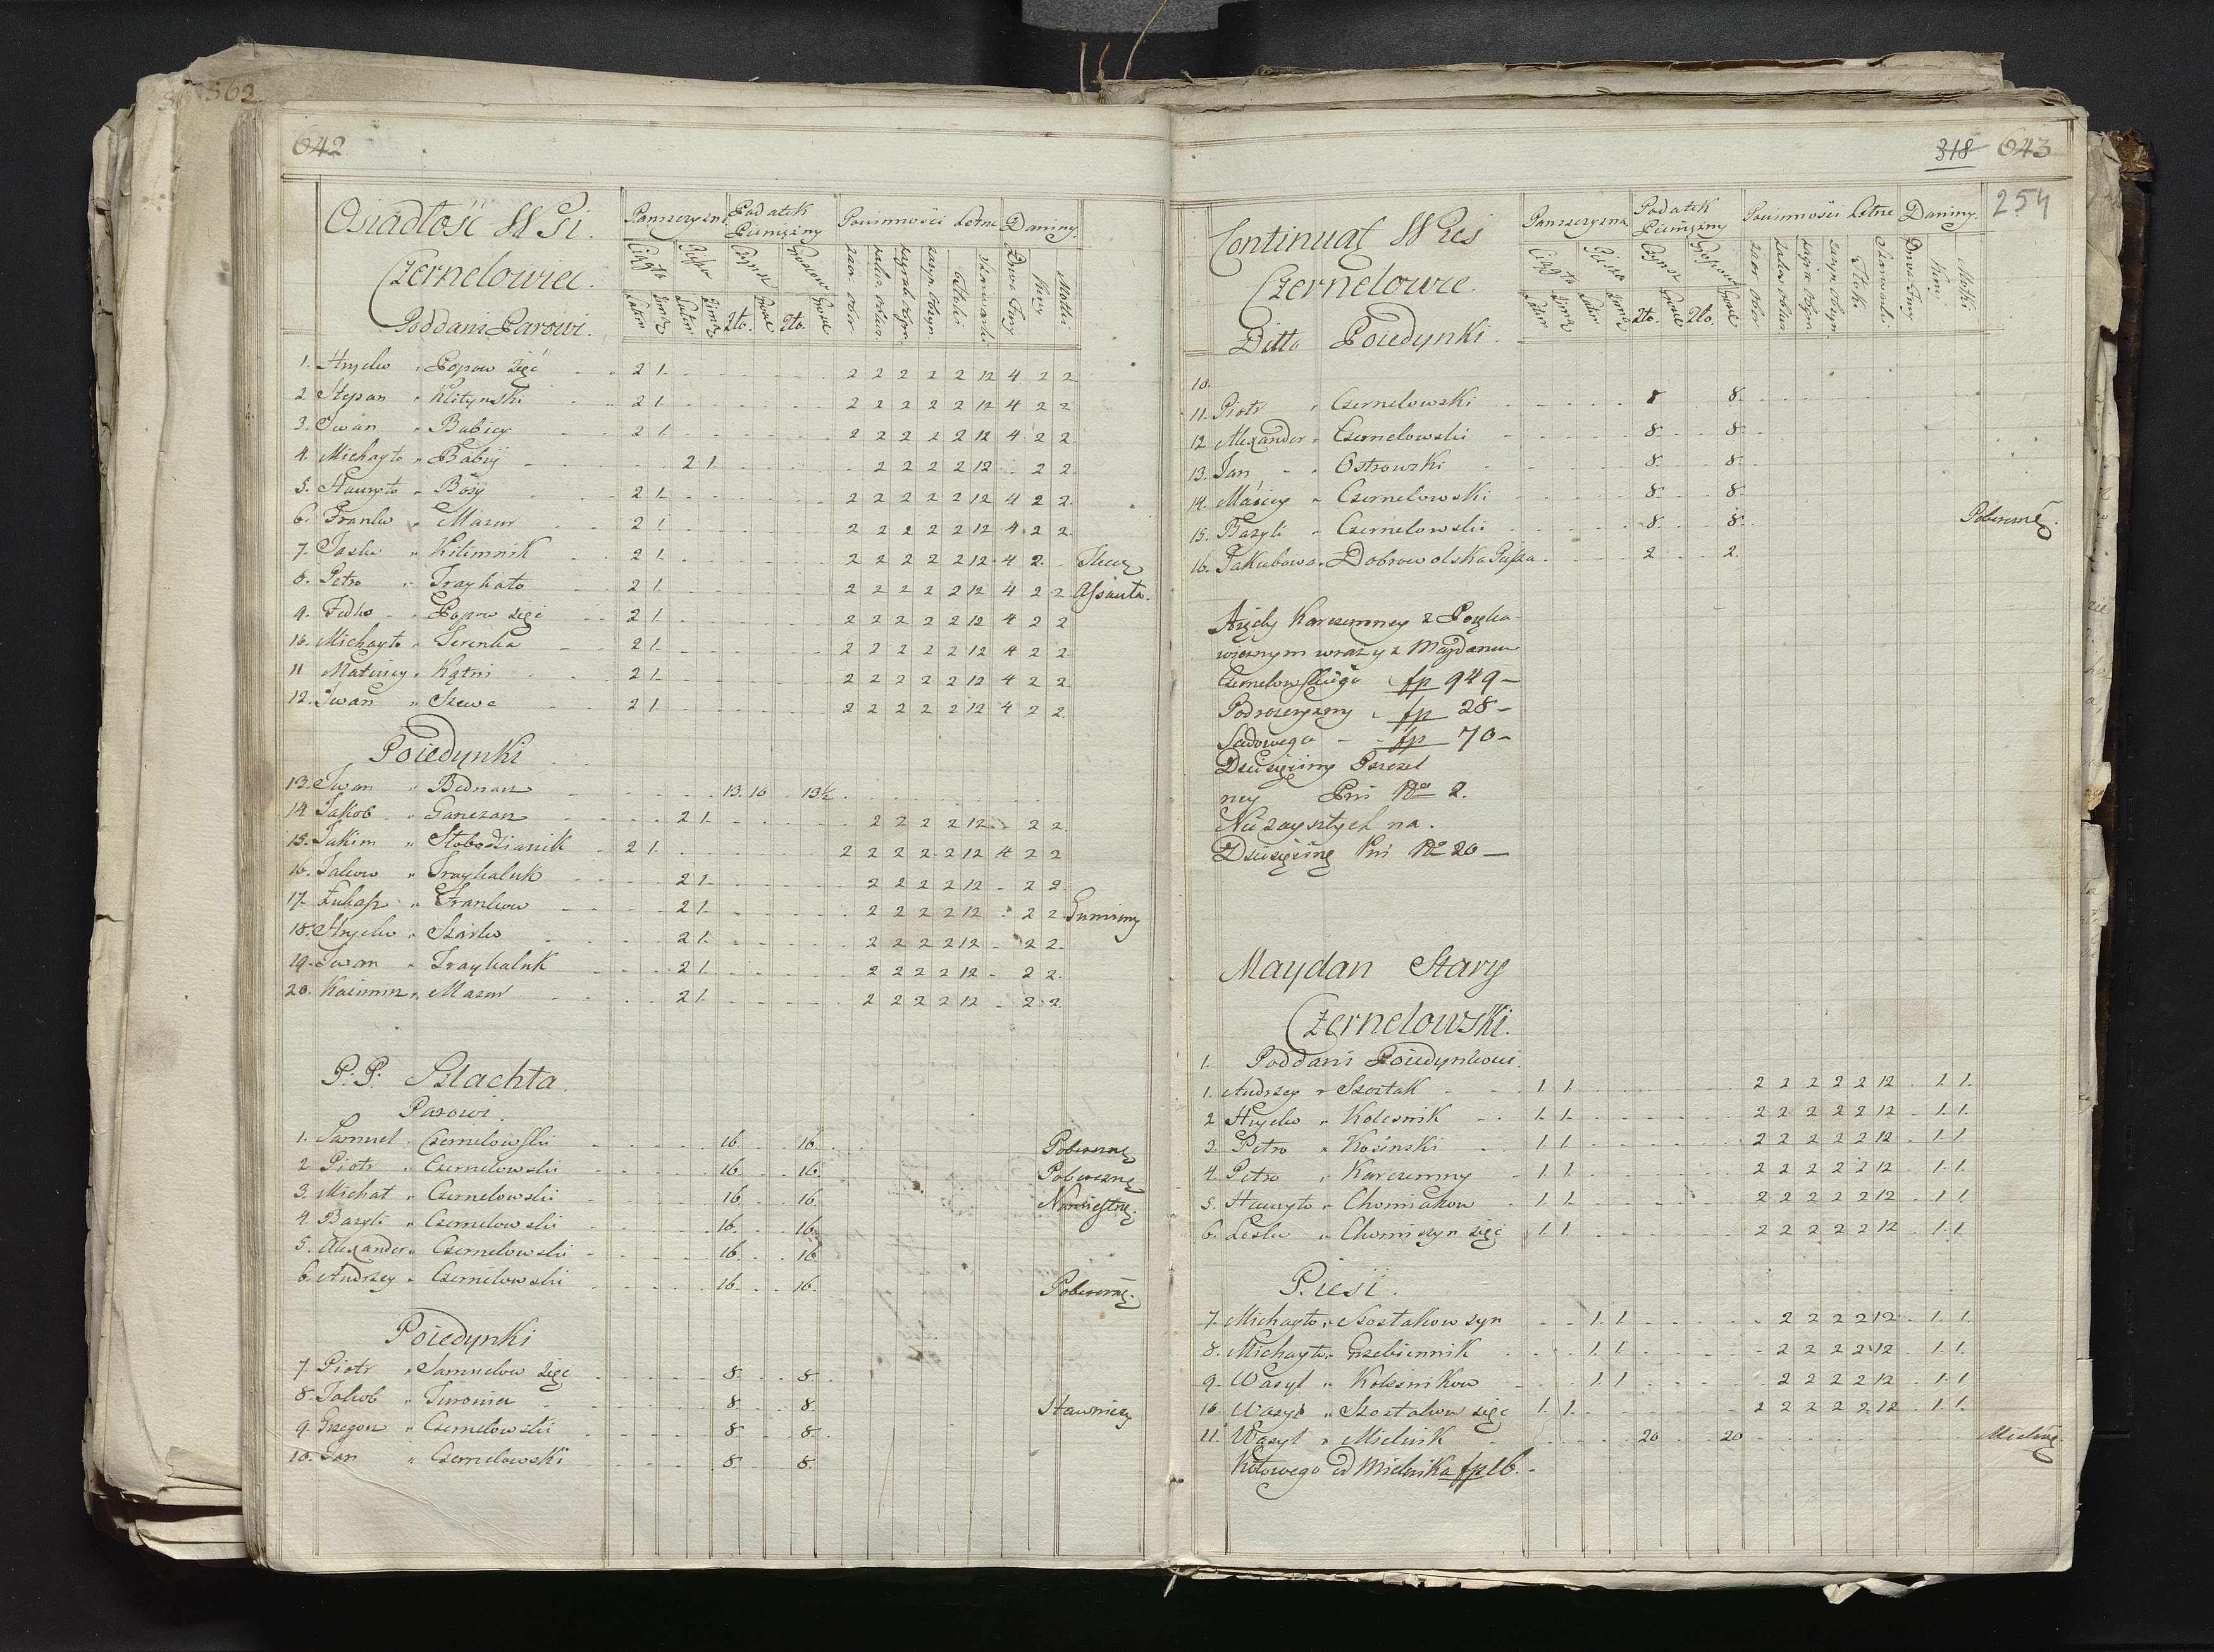 562
642
Osiadłość Wsi
Czernelowiec.
Poddani Parowi.
Panszczyzna
Podatek Pieniężny
Powinności Letne
Daniny
Ciągła
Piesza
Czynsz
Latem
Zimą
Latem
Zimą
Zło.
Zło.
Tłoki
Kury
Motki
1. Hryćko " Popow zięć 2 1. 2 2 2 2 2 12 4 2 2
2 Stepan " Klitynski 2 1. 2 2 2 2 2 12 4 2 2
3. Iwan " Babiey 2 1. 2 2 2 2 2 12 4 2 2
4. Michayło " Babiy 2 1 2 2 2 2 12 2 2
5. Hawryło " Bosy 2 1. 2 2 2 2 2 12 4 2 2.
6. Franko " Mazur 2 1. 2 2 2 2 2 12 4 2 2.
7. Jasko " Kilimnik 2 1. 2 2 2 2 2 12 4 2.
8. Petro " Traykało 2 1. 2 2 2 2 2 12 4 2 2
9. Fedko " Popow zięć 2 1. 2 2 2 2 2 12 4 2 2
10. Michayło " Serenka 2 1. 2 2 2 2 2 12 4 2 2
11 Matiiey " Kątni 2 1. 2 2 2 2 2 12 4 2 2
12. Iwan " Szewc 2 1. 2 2 2 2 2 12 4 2 2
Poiedynki
13. Iwan " Bednarz 13. 10 13½
14 Jakob " Ganczarz 2 1. 2 2 2 2 12 2 2
15. Jakim " Słobodzianik 2 1. 2 2 2 2 2 12 4 2 2
16. Jakow " Traykaluk 2 1. 2 2 2 2 12 2 2
17. Łukasz " Frankow 2 1. 2 2 2 2 12 2 2 Gumieny
18. Hryćko " Szarko 2 1. 2 2 2 2 12 2 2.
19. Iwan " Traykaluk 2 1. 2 2 2 2 12 2 2.
20. Kazimirz " Mazur 2 1. 2 2 2 2 12 2 2.
P: P: Szlachta.
Parowi.
1. Samuel Czernelowski 16. 16. Pobereznę
2. Piotr " Czernelowski 16. 16. Pobereznę
3. Michał " Czernelowski 16 16.
4. Bazyli " Czernelowski 16. 16.
5. Alexander " Czernelowski 16. 16
6. Andrzey " Czernelowski 16. 16. Pobereznę.
Poiedynki
7. Piotr " Samuelow zięć 8. 8.
8. Jakob " 8. 8. Stawniczy
9. Grzegorz " Czernelowski 8 8.
10. Jan " Czernelowski 8. 8.
318 643
254
Continuat Wsi
Czernelowce.
Ditto Poiedynki.
Panszczyzna
Podatek Pieniężny
Powinności Letne
Daniny.
Ciągła
Piesza
Czynsz
Latem
Zimą
Latem
Zimą
Zło.
Zło.
Tłoki
Kury
Motki
10.
11. Piotr " Czernelowski 8 8.
12 Alexander " Czernelowski 8. 8.
13. Jan " Ostrowski 8. 8.
14. Maciey " Czernelowski 8. 8.
15. Bazyli " Czernelowski 8. 8. Pobereznę.
16. Jakubowa " Dobrowolska 2 2.
Karczemney z
wraz y z Maydanu
Czernelowskiego fp 949 –
Podroszczyzny fp 28 –
Sadowego – fp 70 –
Dziesięciny Pszczel
ney Pni No 2.
Nie zaysztych na
Dziesięcinę Pni No 20 –
Maydan Stary
Czernelowski.
1. Poddani Poiedynkowi.
1. Andrzey " Szostak 1. 1. 2 2 2 2 2 12 1. 1.
2 Hryćko " Kolesnik 1. 1. 2 2 2 2 2 12 1. 1.
3. Petro " Kosinski 1 1. 2 2 2 2 2 12 1. 1
4. Petro " Karczemny 1 1. 2 2 2 2 2 12 1. 1.
5. Hawryło " Chomiakow 1 1. 2 2 2 2 2 12 1. 1
6. Lesko " Chomiszyn zięć 1. 1. 2 2 2 2 2 12 1. 1
Piesi.
7. Michayło " Szostakow syn 1. 1 2 2 2 2 12 1. 1.
8. Michayło " Grzebiennik 1. 1 2 2 2 2 12 1. 1.
9. Wasyl " Kolesnikow 1. 1 2 2 2 2 12 1. 1
10. Wasyl " Szostakow zięć 1. 1. 2 2 2 2 2 12 1. 1.
11. Wasyl " Mielnik 20 20
Kołowego od Mielnika fp 16. –